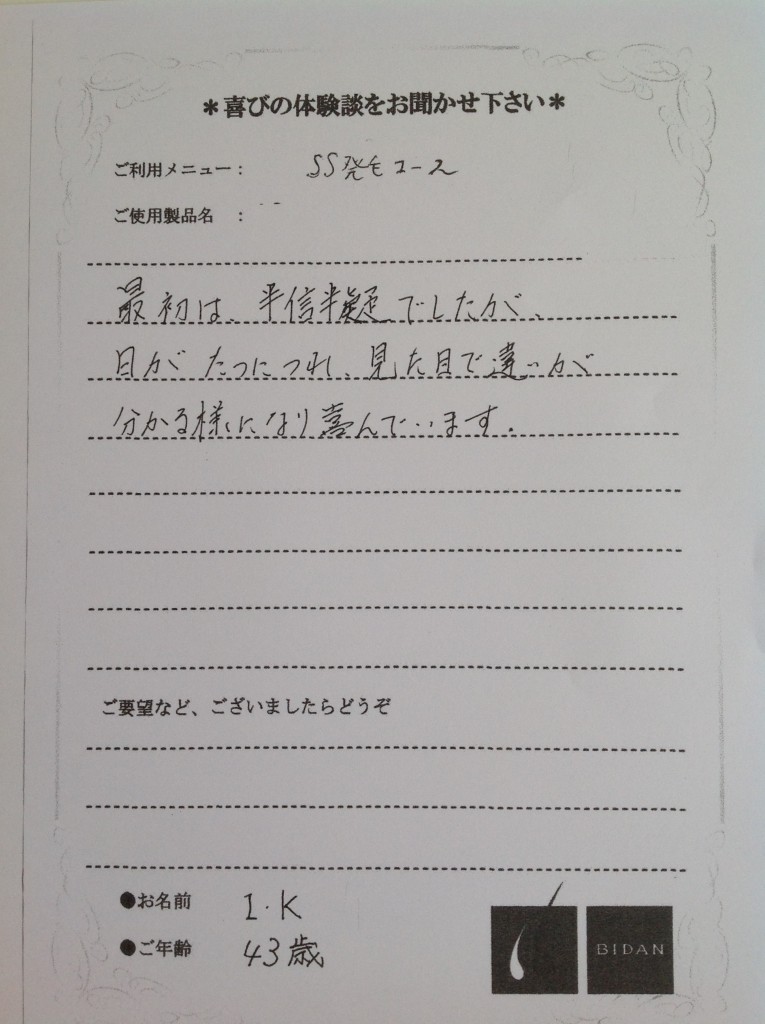 ＊喜びの体験談をお聞かせ下さい＊
ご利用メニュー： SS発毛コース
ご使用製品名 ：
最初は、半信半疑でしたが、
日がたつにつれ、見た目で違いが
分かる様になり喜んでいます。
ご要望など、ございましたらどうぞ
●お名前 I.K
●ご年齢 43歳
BIDAN